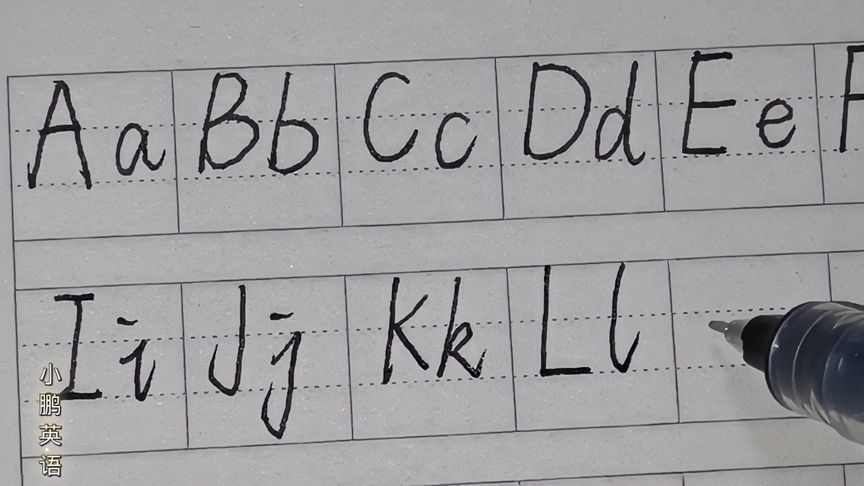 Aa Bb Cc Dd Ee F
Ii Jj Kk Ll
小鹏英语